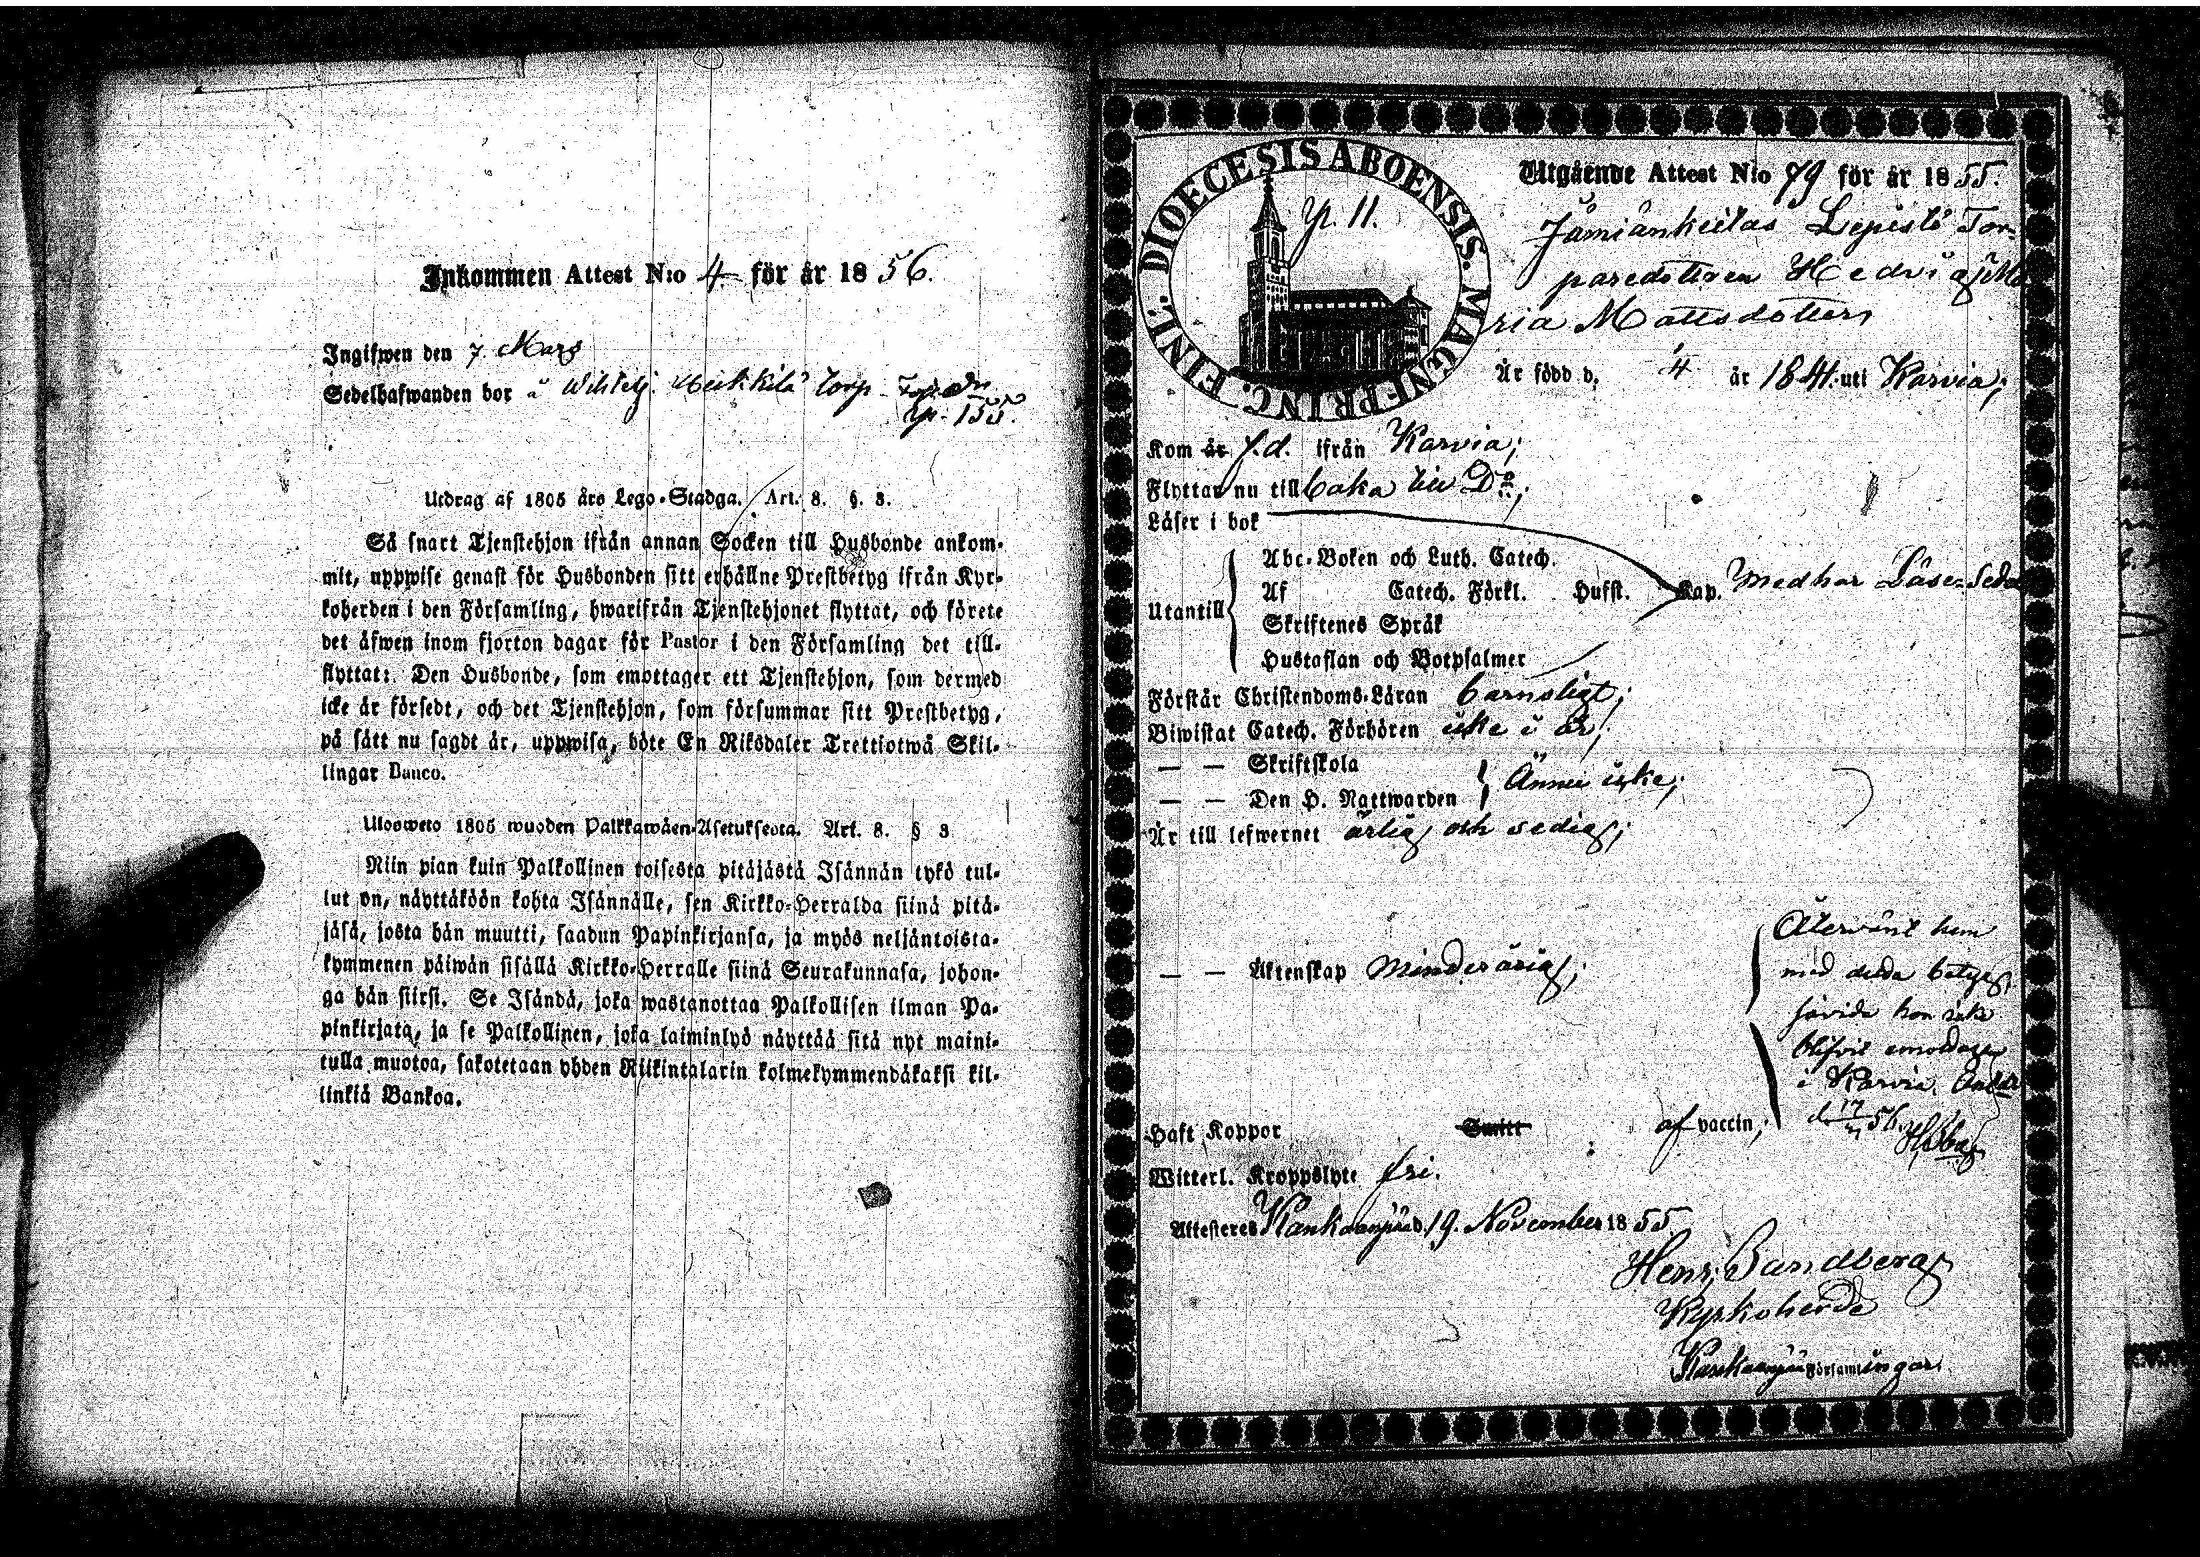 Inkommen Attest N:o 4 för år 1856.
Ingifwen den 7 Mars
Sedelhafwanden bor å torp
p. 155.
Utdrag af 1805 års Lego-Stadga. Art. 8. §. 3.
Så snart Tjenstehjon ifrån annan Socken till Husbonde ankom-
mit, uppwise genast för Husbonden sitt erhållne Prestbetyg ifrån Kyr-
koherden i den Församling, hwarifrån Tjenstehjonet flyttat, och förete
det äfwen inom fjorton dagar för Pastor i den Församling det till-
flyttat: Den Husbonde, som emottager ett Tjenstehjon, som dermed
icke är försedt, och det Tjenstehjon, som försummar sitt Prestbetyg,
på sätt nu sagdt är, uppwisa, böte En Riksdaler Trettiotwå Skil-
lingar Banco.
Ulosweto 1805 wuoden Palkkawäen-Asetuksesta. Art. 8. § 3
Niin pian kuin Palkollinen toisesta pitäjästä Isännän tykö tul-
lut on, näyttäköön kohta Isännälle, sen Kirkko-Herralda siinä pitä-
jäsä, josta hän muutti, saadun Papinkirjansa, ja myös neljäntoista-
kymmenen päiwän sisällä Kirkko-Herralle siinä Seurakunnasa, johon-
ga hän siirsi. Se Isändä, joka wastanottaa Palkollisen ilman Pa-
pinkirjata, ja se Palkollinen, joka laiminlyö näyttää sitä nyt maini-
tulla muotoa, sakotetaan yhden Riikintalarin kolmekymmendäkaksi kil-
linkiä Bankoa.
DIOECESIS ABOENSIS. MAGNI PRINC. FINL.
p. 11.
Utgående Attest N:o 79 för år 1855.
Jämiänkeitas Lepistö Tor-
paredottren Hedvig Ma
ria Mattsdotter
Är född d. 4 år 1841 uti Karvia;
Kom år f.d. ifrån Karvia;
Flyttar nu tillbaka till D:o;
Läser i bok
Utantill
Abc-Boken och Luth. Catech.
Af Catech. Förkl. Hufst. Kap. medhar Läse-Sedel
Skriftenes Språk
Hustaflan och Botpsalmer
Förstår Christendoms-Läran barnsligt;
Biwistat Catech. Förhören icke i år;
— — Skriftskola
— — Den H. Nattwarden Ännu icke;
Är till lefwernet ärlig och sedig;
— — Äktenskap Minderårig;
Återvänt hem
med detta betyg,
såvida hon icke
blifvit emottagen
i Karvia,
d. 17 56.
Haft Koppor Smitt af vaccin;
Witterl. Kroppslyte fri.
Attesteres Kankaanpää d. 19. November 1855
Henr. Sandberg
Kyrkoherde
Kankaanpää Församlingar.